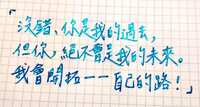 「沒錯，你是我的過去，
但你，絕不會是我的未來。
我會開拓——自己的路！」